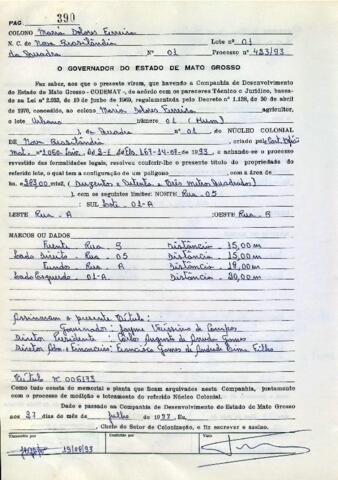 PAG. 390
COLONO Maria Dolores Ferreira
N. C. de Nova Brasilândia Lote nº 01
da Quadra Nº 01 Processo nº 423/93
O GOVERNADOR DO ESTADO DE MATO GROSSO
Faz saber, aos que o presente virem, que havendo a Companhia de Desenvolvimento
do Estado de Mato Grosso - CODEMAT -, de acôrdo com os pareceres Técnico e Jurídico, basea-
da na Lei 2.933, de 19 de junho de 1969, regulamentada pelo Decreto nº 1.138, de 30 de abril
de 1970, concedido, ao colono Maria Dolores Ferreira agricultor,
o lote Urbano número 01 (Hum)
), da Quadra nº 01 do NÚCLEO COLONIAL
DE Nova Brasilândia, criado pelo
Mat. nº 1.060 Livro 2-I fls. 167-14-07- 1993 e achando-se o processo
investido das formalidades legais, resolvez conferir-lhe o presente título de propriedade do
referido lote, o qual tem a configuração de um polígono com a área de
283,00 mts2, (Duzentos e Oitenta e Três Metros Quadrados)
), com os seguintes limites: NORTE Rua - 05
: SUL Lote 01-A
LESTE Rua - A :OESTE Rua - B
MARCOS OU DADOS
Frente Rua B Distância - 15,00 m
Lado Direito - Rua - 05 Distância - 15,00 m
Fundo - Rua - A Distância - 18,00 m
Lado Esquerdo - 01-A Distância - 20,00 m
Assinaram o presente Título:
Governador: Jayme Veríssimo de Campos
Diretor Presidente: Carlos Augusto de Arruda Gomes
Diretor Adm. e Financeiro: Francisco Gomes de Andrade Lima Filho
Título Nº 006173
Como tudo consta do memorial e planta que ficam arquivados nesta Companhia, juntamente
com o processo de medição e loteamento do referido Núcleo Colonial.
Dado e passado na Companhia de Desenvolvimento do Estado de Mato Grosso
aos 27 dias do mês de julho de 1993 Eu,
, Chefe do Setor de Colonização, o fiz escrever e assino.
Transcrito por
Conferido por
Visto
19/08/93